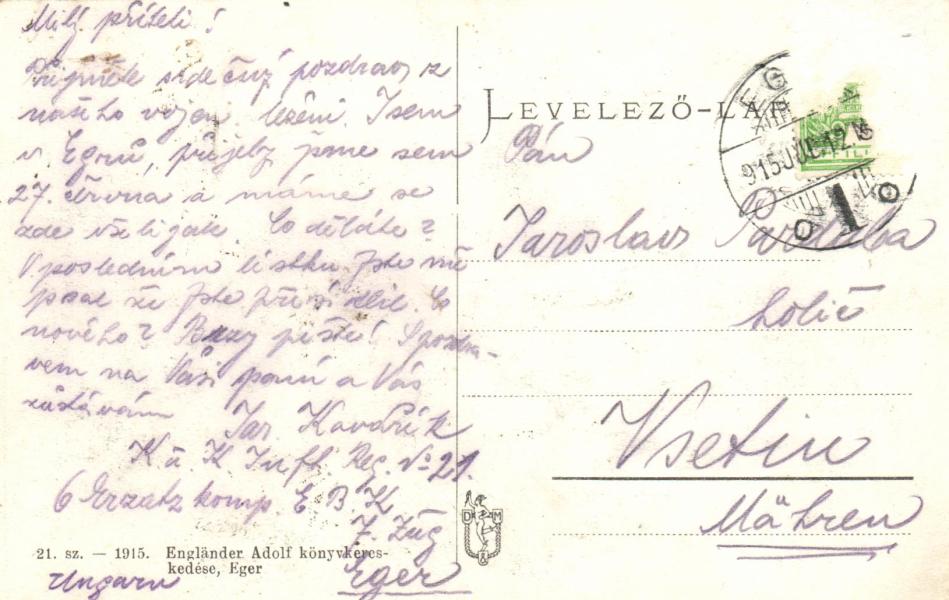 Milý příteli!
Přijměte srdečný pozdrav z
našeho vojen. ležení. Jsem
v Egru, přijely jsme sem
27. června a máme se
zde všelijak. Co děláte?
V posledním lístku jste mě
psal že jste přesídlil. Co
nového? Brzy pište! S pozdra-
vem na Vaši paní a Vás
zůstávám
Jar. Kovařík
K u. K Inft Reg. No 21.
6 Ersatz komp. E B K
7. Zug
Eger
Ungarn
21. sz. — 1915. Engländer Adolf könyvkeres-
kedése, Eger
D M
LEVELEZŐ-LAP
915 JUL. 12.
FILL
Pán
Jaroslav
holič
Vsetin
Mähren